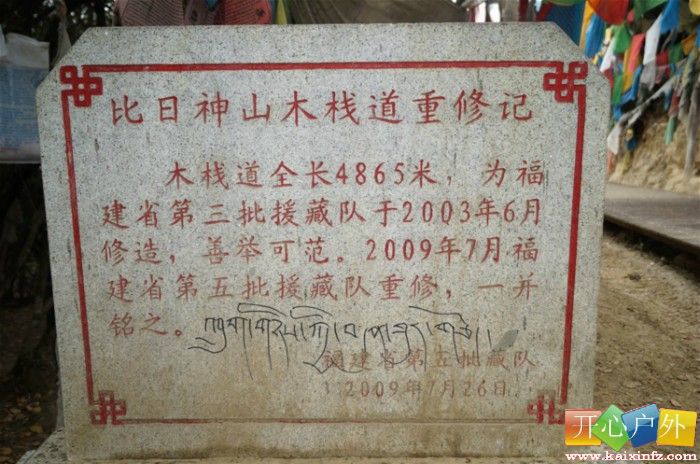 比日神山木栈道重修记
木栈道全长4865米，为福
建省第三批援藏队于2003年6月
修造，善举可范。2009年7月福
建省第五批援藏队重修，一并
铭之。
福建省第五批藏队
2009年7月26日
开心户外
www.kaixinfz.com